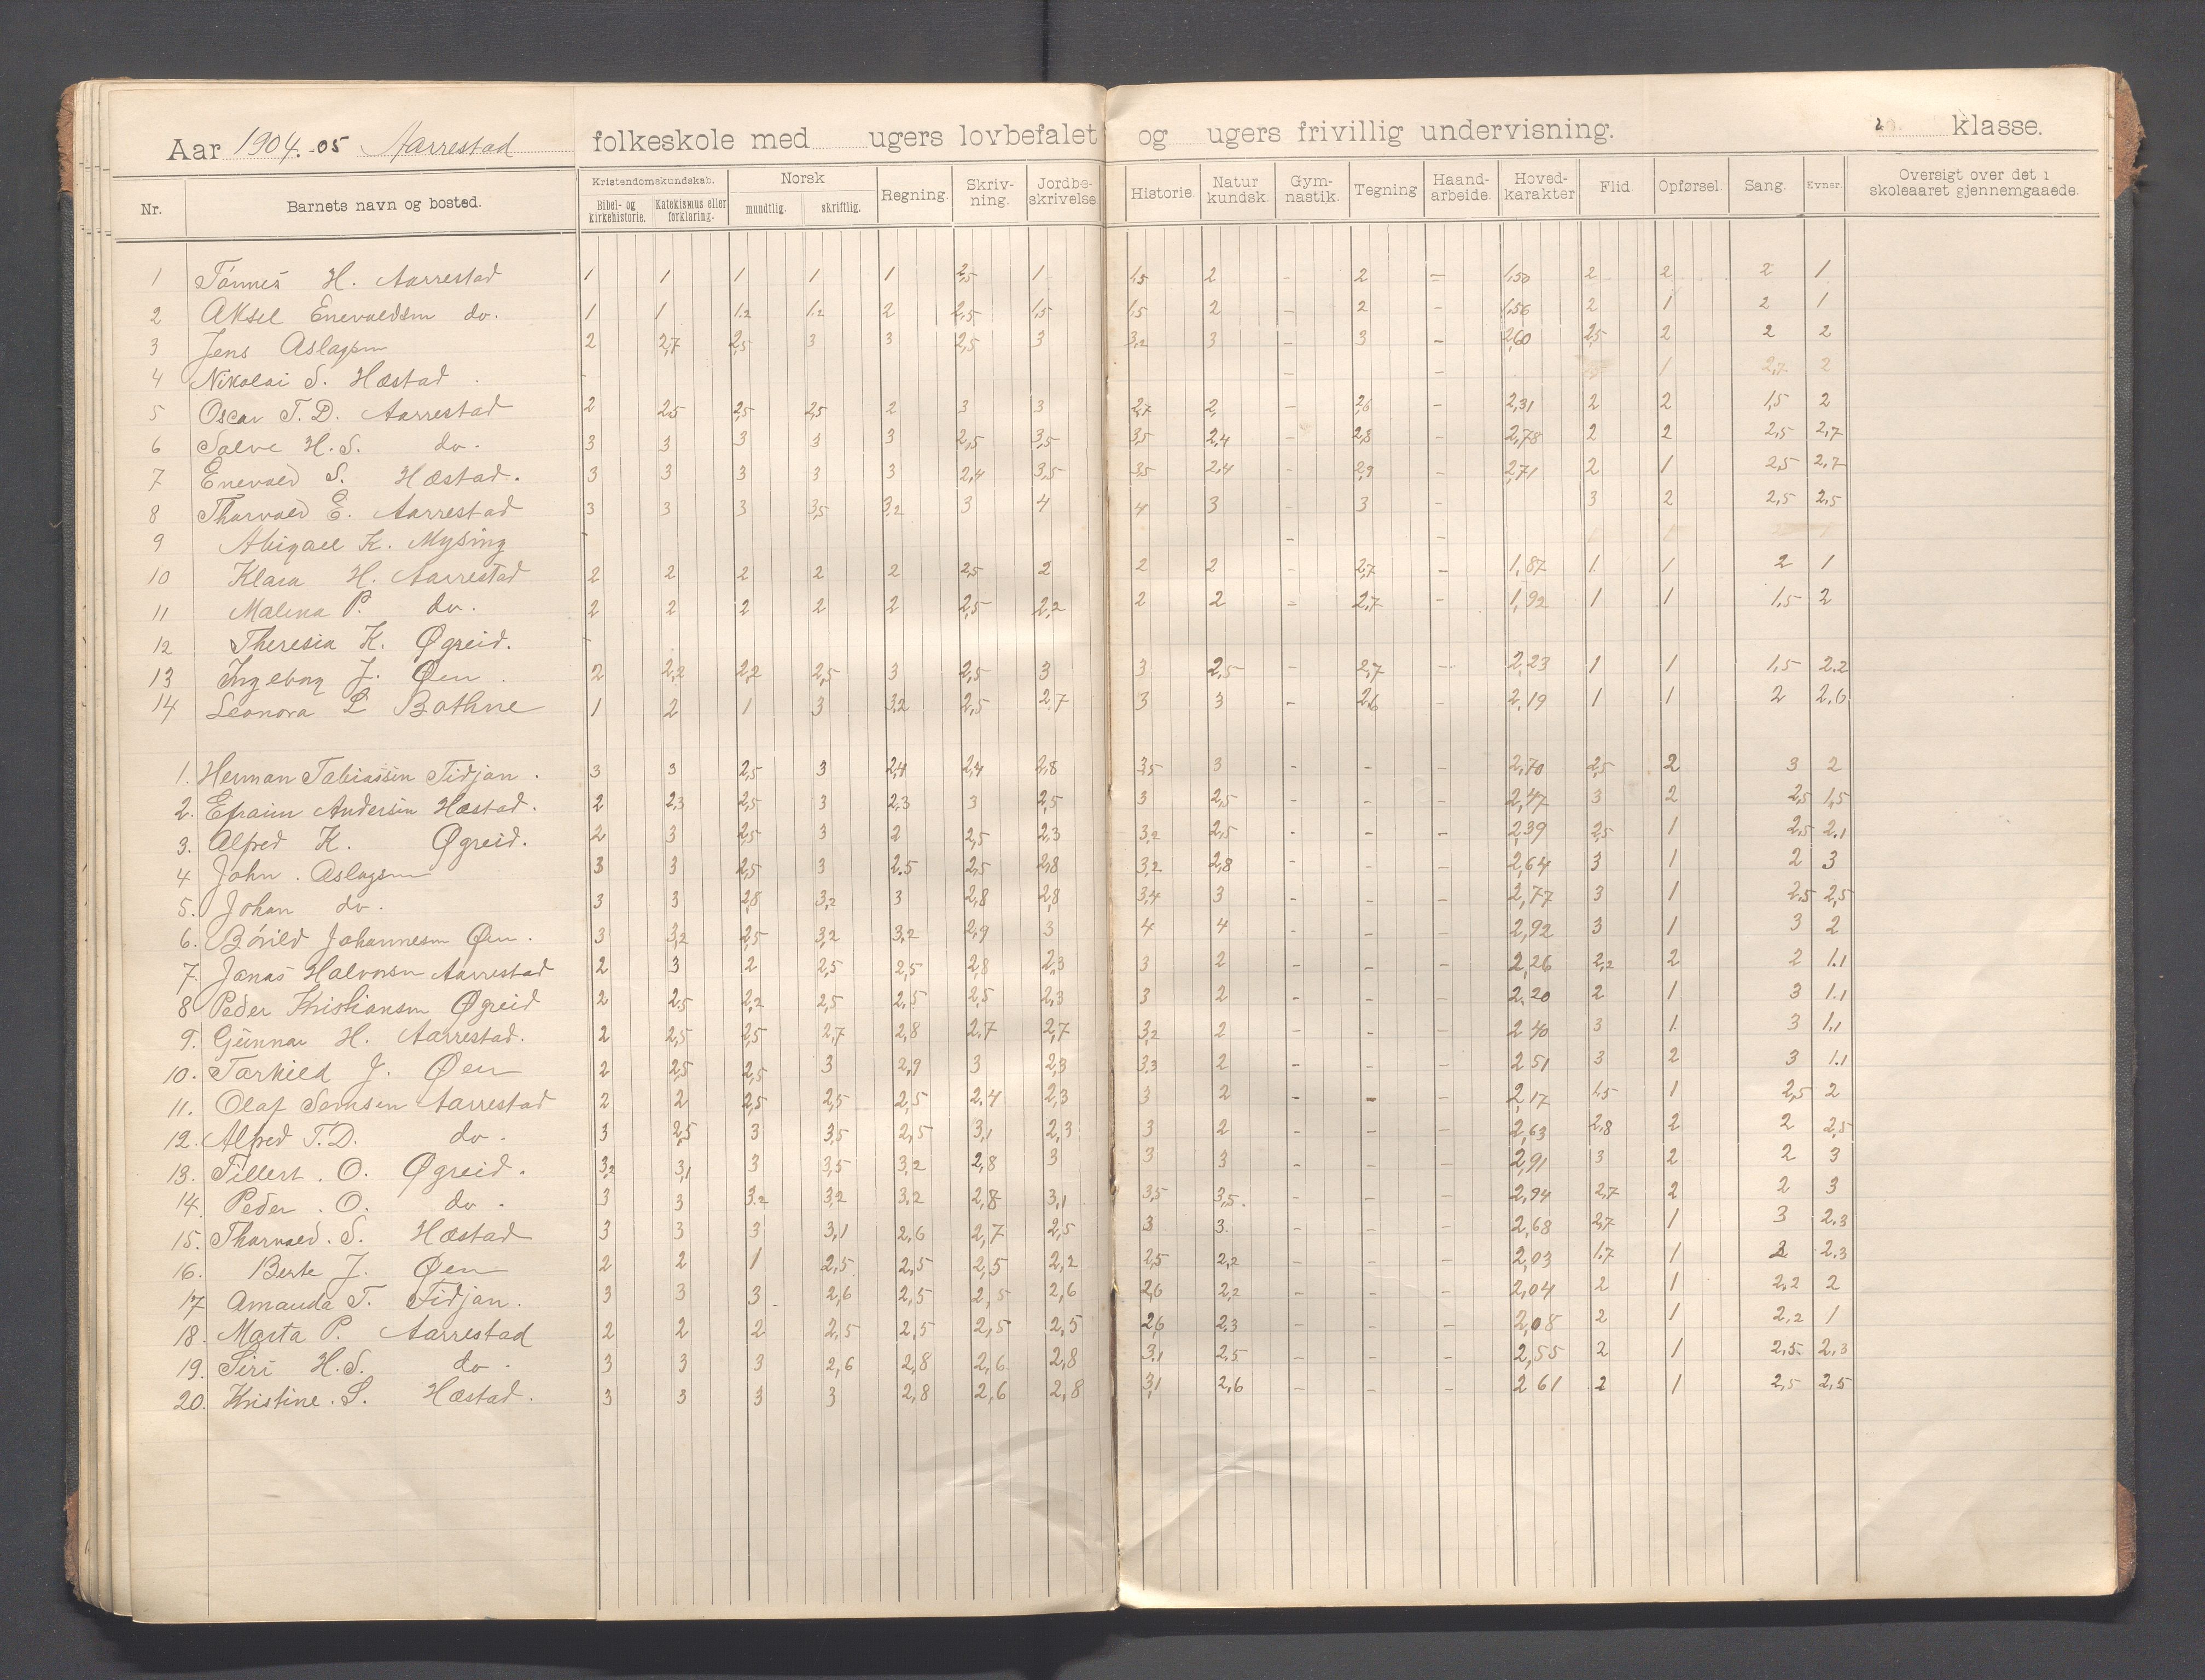 Aar 1904.-05 Aarrestad folkeskole med ugers lovbefalet og ugers frivillig undervisning. 2 klasse.
Nr. Barnets navn og bosted. Kristendomskundskab. Bibel- og kirkehistorie. Katekismus eller forklaring. Norsk mundtlig. skriftlig. Regning. Skriv-ning. Jordbe-skrivelse Historie. Natur kundsk. Gym-nastik. Tegning Haand-arbeide. Hoved-karakter Flid. Opførsel. Sang. Evner. Oversigt over det i skoleaaret gjennemgaaede.
1 Tønnes H. Aarrestad 1 1 1 1 1 2,5 1 1,5 2 - 2 - 1,50 2 2 2 1
2 Aksel Enevaldsen do. 1 1 1.2 1.2 2 2,5 1,5 1,5 2 - 2 - 1,56 2 1 2 1
3 Jens Aslagsen 2 2,7 2,5 3 3 2,5 3 3,2 3 - 3 - 2,60 2,5 2 2 2
4 Nikolai S. Hæstad - - - 1 2,7 2
5 Oscar T. D. Aarrestad 2 2,5 2,5 2,5 2 3 3 2,7 2, - 2,6 - 2,31 2 2 1,5 2
6 Salve H. S. do. 3 3 3 3 3 2,5 3,5 3,5 2,4 - 2,8 - 2,78 2 2 2,5 2,7
7 Enevald S. Hæstad. 3 3 3 3 3 2,4 3,5 3,5 2,4 - 2,9 - 2,71 2 1 2,5 2,7
8 Tharvald E. Aarrestad 3 3 3 3,5 3,2 3 4 4 3 - 3 - 3 2 2,5 2,5
9 Abigael K. Mysing - - -
10 Klara H. Aarrestad 2 2 2 2 2 2,5 2 2 2 - 2,7 - 1,87 1 1 2 1
11 Malena P. do. 2 2 2 2 2 2,5 2,2 2 2 - 2,7 - 1,92 1 1 1,5 2
12 Theresia K. Øgreid. -
13 Ingeborg J. Øen 2 2,2 2,2 2,5 3 2,5 3 3 2,5 - 2,7 - 2,23 1 1 1,5 2.2
14 Leonora L Bothne 1 2 1 3 3,2 2,5 2,7 3 3 - 2,6 - 2,19 1 1 2 2.6
1. Herman Tabiassen Tidjan. 3 3 2,5 3 2,4 2,4 2,8 3,5 3 - - - 2,70 2,5 2 3 2
2. Efraim Andersen Hæstad. 2 2,3 2,5 3 2.3 3 2,5 3 2,5 - - - 2,47 3 2 2,5 1,5
3. Alfred K. Øgreid. 2 3 2,5 3 2 2,5 2,3 3,2 2,5 - - - 2,39 2,5 1 2,5 2.1
4 John. Aslagsen 3 3 2,5 3 2.5 2,5 2,8 3,2 2,8 - - - 2,64 3 1 2 3
5. Johan do. 3 3 2,8 3,2 3 2,8 2,8 3,4 3 - - - 2,77 3 1 2.5 2,5
6. Bórild Johannesen Øen. 3 3,2 2,5 3,2 3,2 2,9 3 4 4 - - - 2,92 3 1 3 2
7. Jonas Halvorsen Aarrestad 2 3 2 2,5 2,5 2,8 2,3 3 2 - - - 2,26 2,2 2 2 1.1
8 Peder Kristiansen Øgreid 2 2,5 2,2 2,5 2.5 2,5 2,3 3 2 - - - 2.20 2 1 3 1.1
9. Gunnar H. Aarrestad. 2 2,5 2,5 2,7 2,8 2.7 2,7 3,2 2 - - - 2 40 3 1. 3 1,1
10. Tarkild J. Øen 2 2,5 2,5 3 2,9 3 2,3 3,3 2 - - - 2 51 3 2 3 1.1
11. Olaf Semsen Aarrestad 2 2 2,5 2,5 2,5 2.4 2,3 3 2 - - - 2,17 1,5 1 2,5 2
12. Alfred T. D. do. 3 2,5 3 3,5 2,5 3,1 2,3 3 2 - - - 2,63 2,8 2 2 2,5
13. Tillert. O. Øgreid. 3,2 3,1 3 3,5 3,2 2,8 3 3 3 - - - 2,91 3 2 2 3
14. Peder. O. do. 3 3 3.2 3,2 3.2 2,8 3,1 3,5 3,5. - - - 2,94 2,7 2 2 3
15. Tharvald. S. Hæstad 3 3 3 3,1 2,6 2,7 2,5 3 3. - - - 2,68 2,7 1 3 2.3
16. Berte J. Øen 2 2 1 2,5 2,5 2,5 2,2 2,5 2,2 - - - 2,03 1.7 1 2 2.3
17 Amanda T. Tidjan. 3 3 3 2,6 2,5 2,5 2,6 2,6 2,2 - - - 2,04 2 1 2,2 2
18. Marta P. Aarrestad 2 2 2 2,5 2,5 2,5 2,5 2,6 2.3 - - - 2,08 2 1 2,2 1
19. Siri H. S. do. 3 3 3 2,6 2,8 2,6 2,8 3,1 2,5 - - - 2,55 2 1 2,5 2,3
20. Kristine. S. Hæstad. 3 3 3 3 2,8 2,6 2,8 3,1 2,6 - - - 2 61 2 1 2,5 2,5